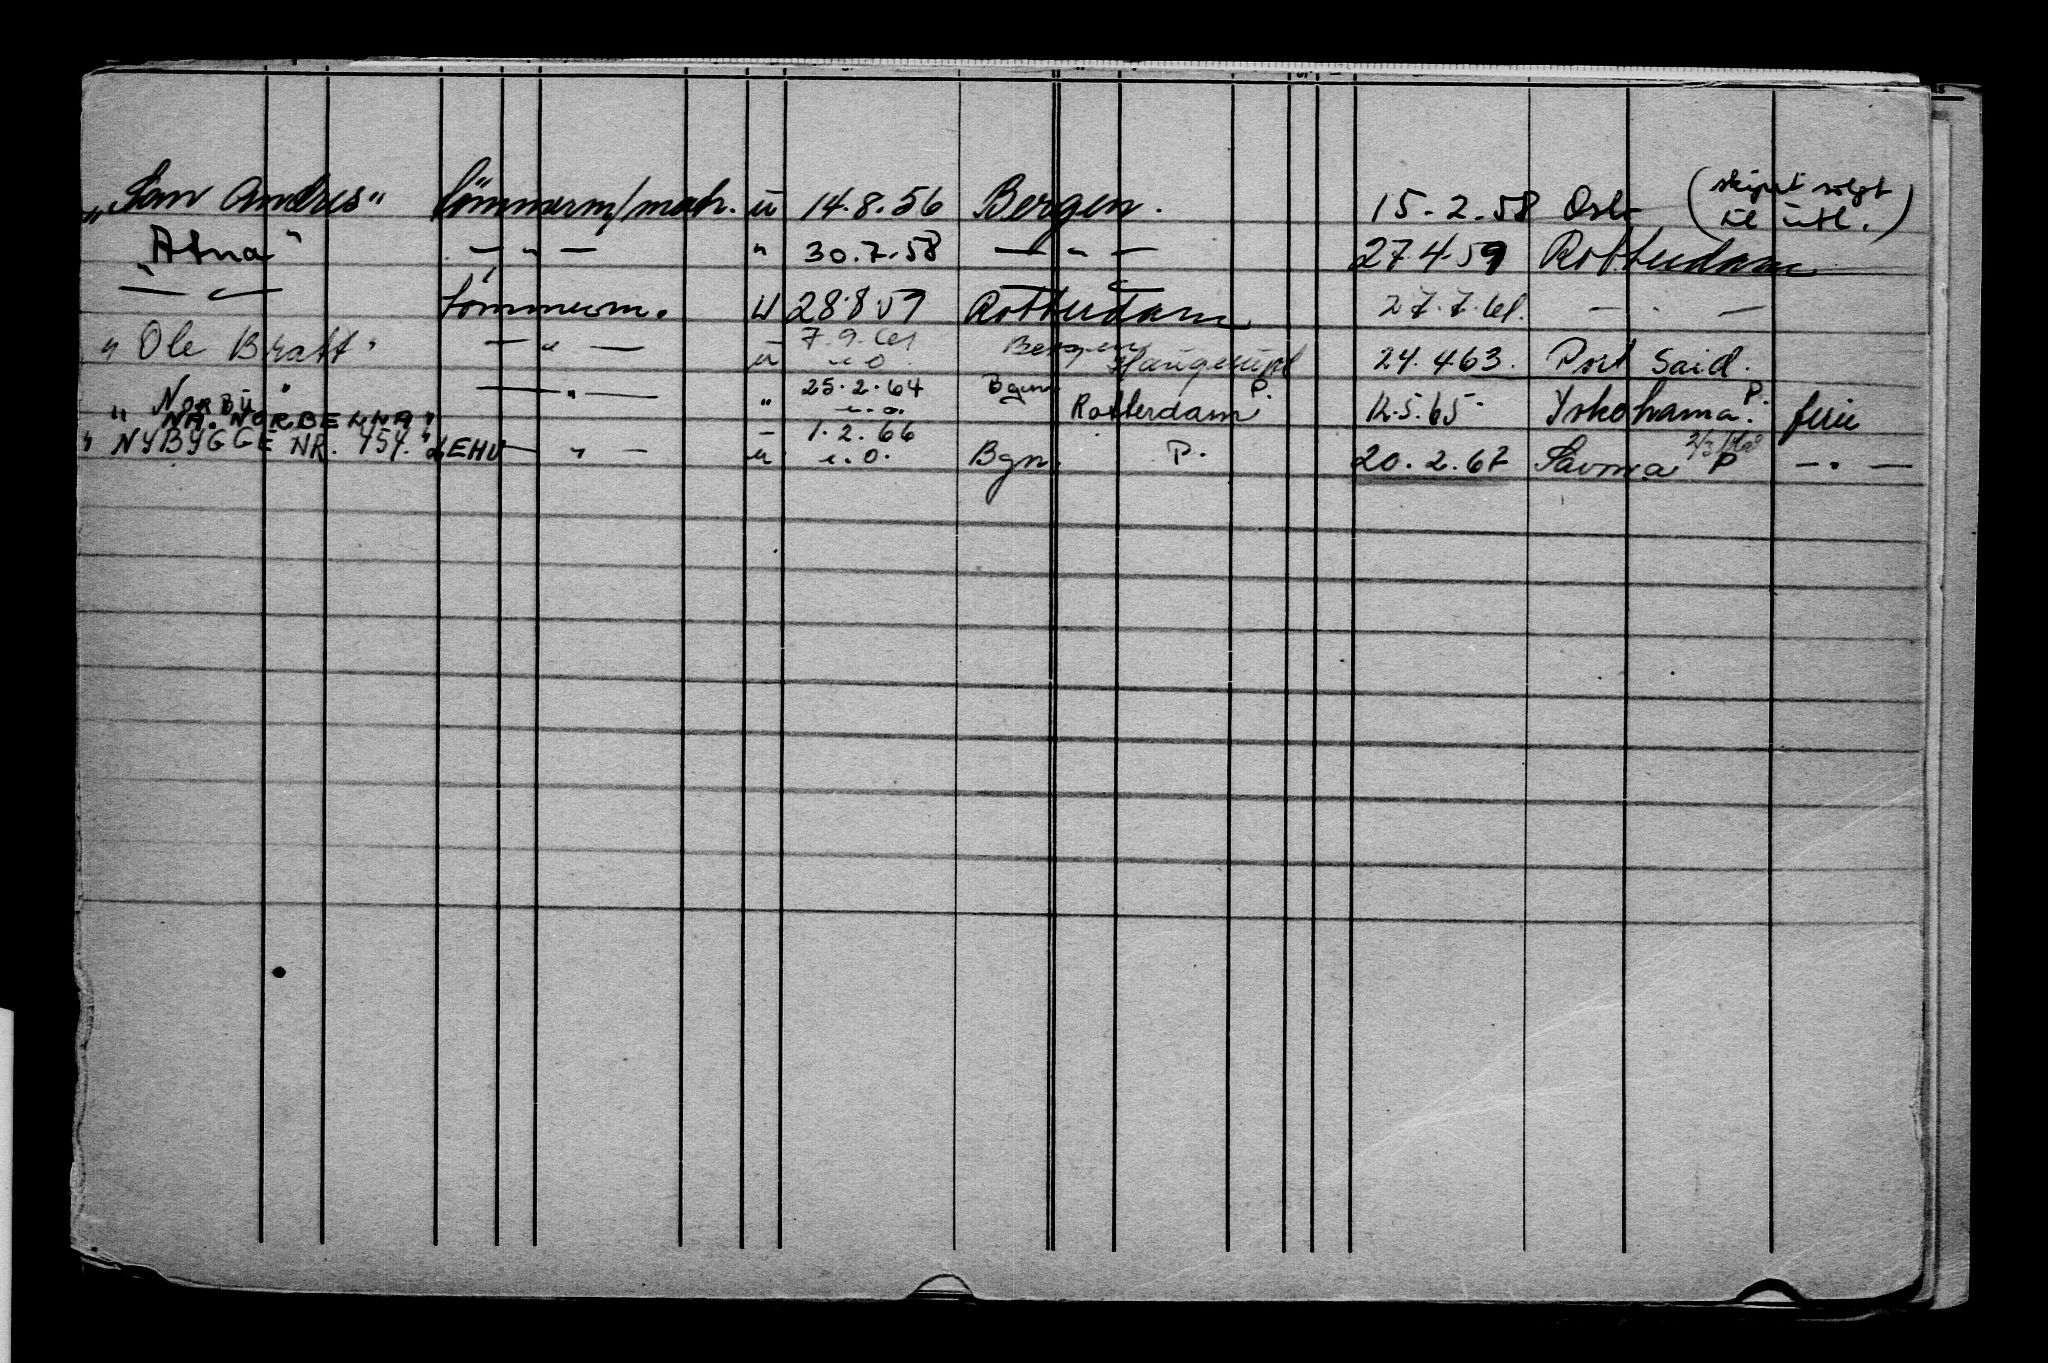 „San Andres" tömmerm/matr. u 14.8.56 Bergen. 15.2.58 Oslo (skipet solgt til utl.)
„Atna" — " — " 30.7.58 — " — 27.4.59 Rotterdam
— " — tömmerm. u 28.8.59 Rotterdam 27.7.61. — " —
" Ole Bratt" — " — u 7.9.61 u.o. Bergen Haugesund 24.4.63. Port Said.
" Norbu" — " — " 25.2.64 u.o. Bgn Rotterdam P. 12.5.65 Yokohama P. ferie
NÅ. NORBELLA"
" NYBYGGE NR. 757." LEHV — " — u 1.2.66 u.o. Bgn. P. 20.2.67 Savona P — " —